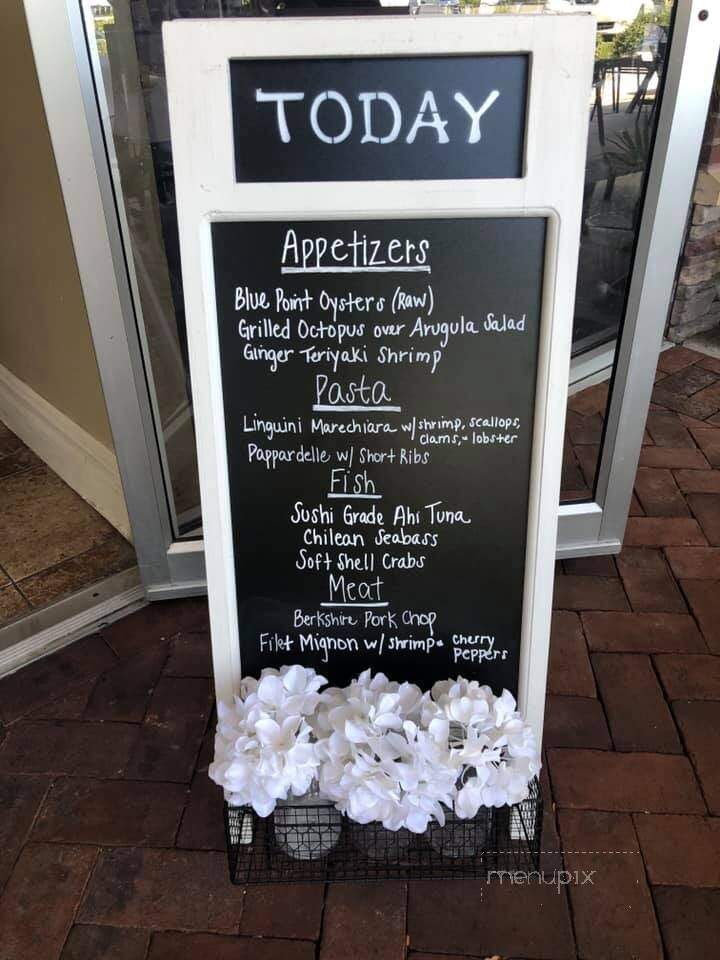 TODAY
Appetizers
Blue Point Oysters (Raw)
Grilled Octopus over Arugula Salad
Ginger Teriyaki Shrimp
Pasta
Linguini Marechiara w/ shrimp, scallops,
clams, + lobster
Pappardelle w/ Short Ribs
Fish
Sushi Grade Ahi Tuna
Chilean Seabass
Soft Shell Crabs
Meat
Berkshire Pork Chop
Filet Mignon w/ shrimp + cherry
peppers
menupix